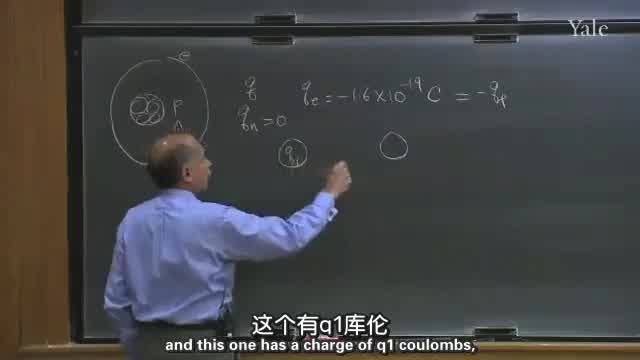 Yale
e
q
q_e = -1.6 × 10^{-19} C = -q_p
P
n
q_n = 0
q_1
这个有q1库伦
and this one has a charge of q1 coulombs,